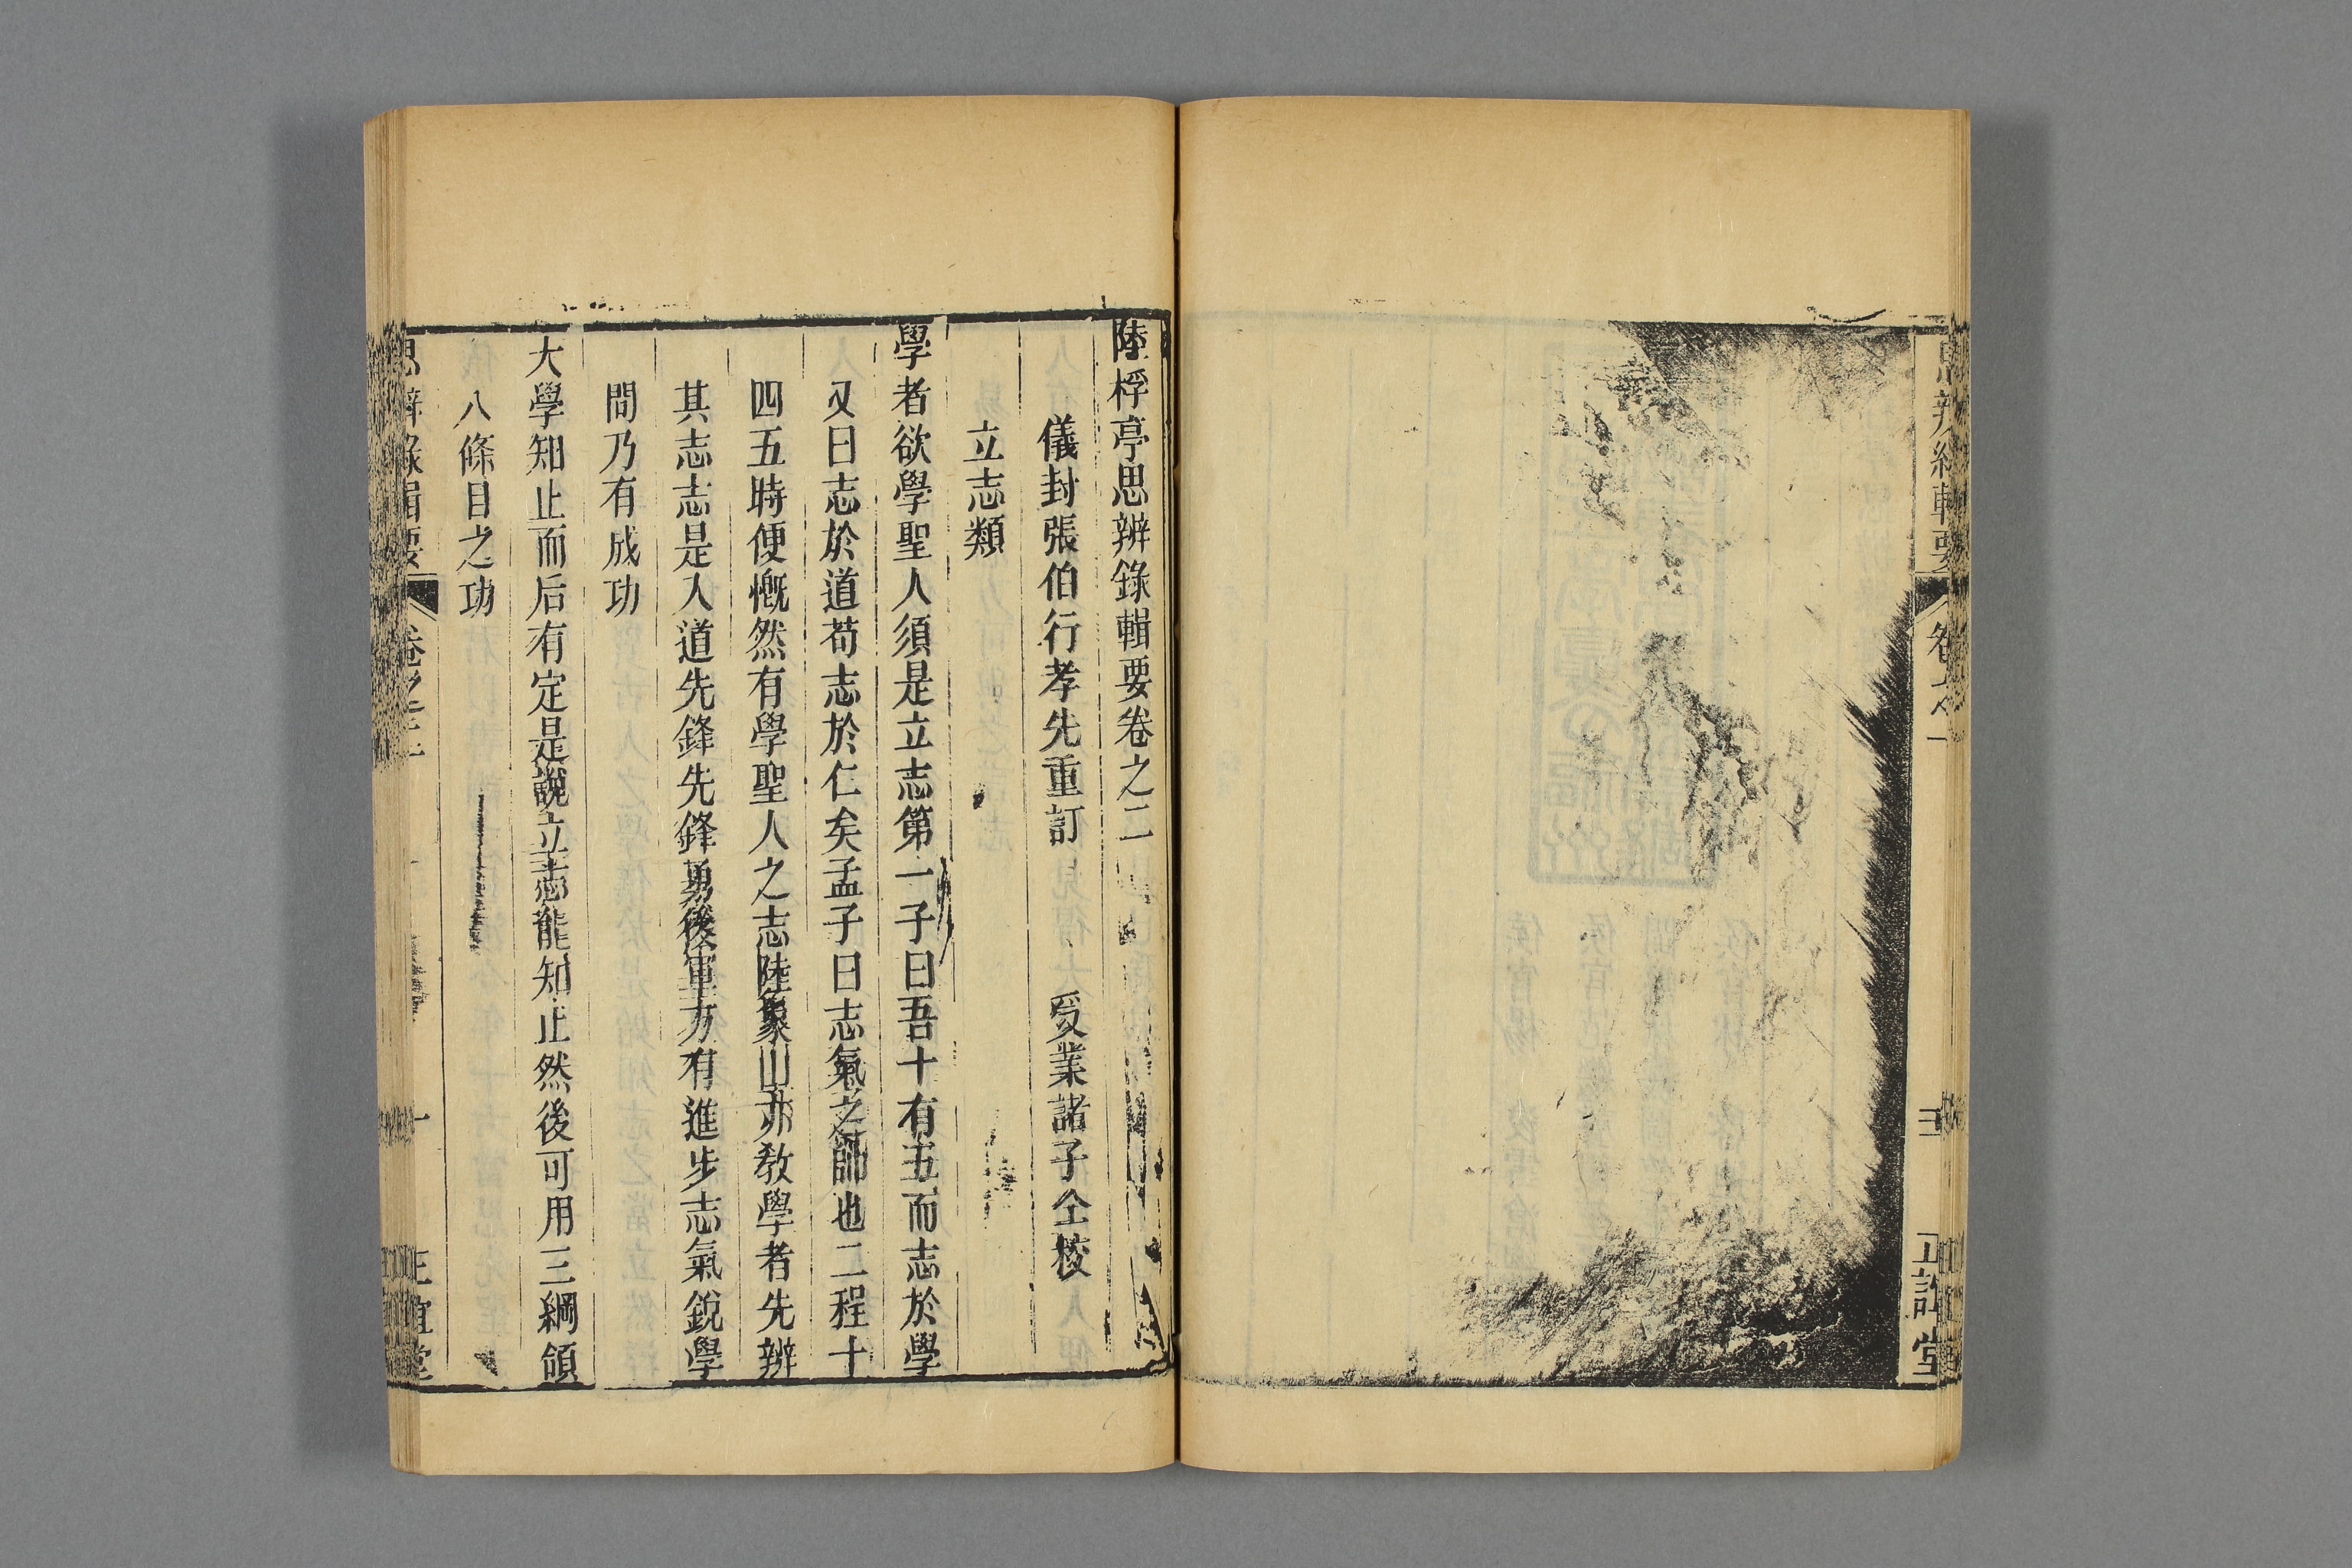 思辨錄輯要 卷之一 正誼堂
陸桴亭思辨錄輯要卷之二
儀封張伯行孝先重訂 受業諸子仝校
立志類
學者欲學聖人須是立志第一子曰吾十有五而志於學
又曰志於道苟志於仁矣孟子曰志氣之帥也二程十
四五時便慨然有學聖人之志陸象山亦教學者先辨
其志志是入道先鋒先鋒勇後軍方有進步志氣銳學
問乃有成功
大學知止而后有定是說立志能知止然後可用三綱領
八條目之功
思辨錄輯要 卷之二 一 正誼堂